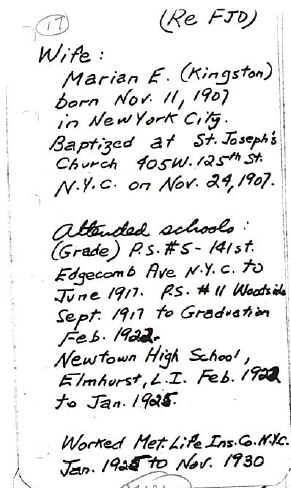 17
(Re FJD)
Wife:
Marian E. (Kingston)
born Nov. 11, 1907
in New York City.
Baptized at St. Joseph's
Church 405 W. 125th St.
N.Y.C. on Nov. 24, 1907.
Attended schools:
(Grade) P.S. #5 - 141st.
Edgecomb Ave N.Y.C. to
June 1917. P.S. #11 Woodside
Sept. 1917 to Graduation
Feb. 1922.
Newtown High School,
Elmhurst, L.I. Feb. 1922
to Jan. 1925.
Worked Met. Life Ins. Co. N.Y.C.
Jan. 1925 to Nov. 1930